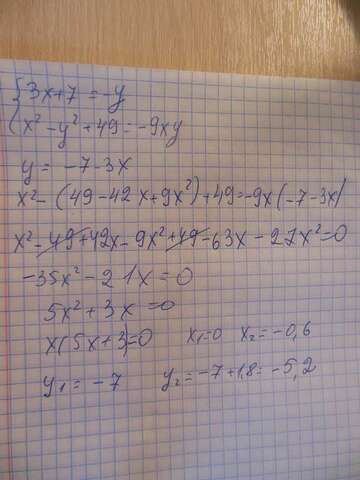 {3x+7 = -y
x² - y² + 49 = -9xy
y = -7-3x
x² - (49 - 42x + 9x²) + 49 = -9x(-7-3x)
x² - 49 + 42x - 9x² + 49 - 63x - 27x² = 0
-35x² - 21x = 0
5x² + 3x = 0
x(5x+3)=0 x₁=0 x₂=-0,6
y₁ = -7 y₂ = -7+1,8 = -5,2